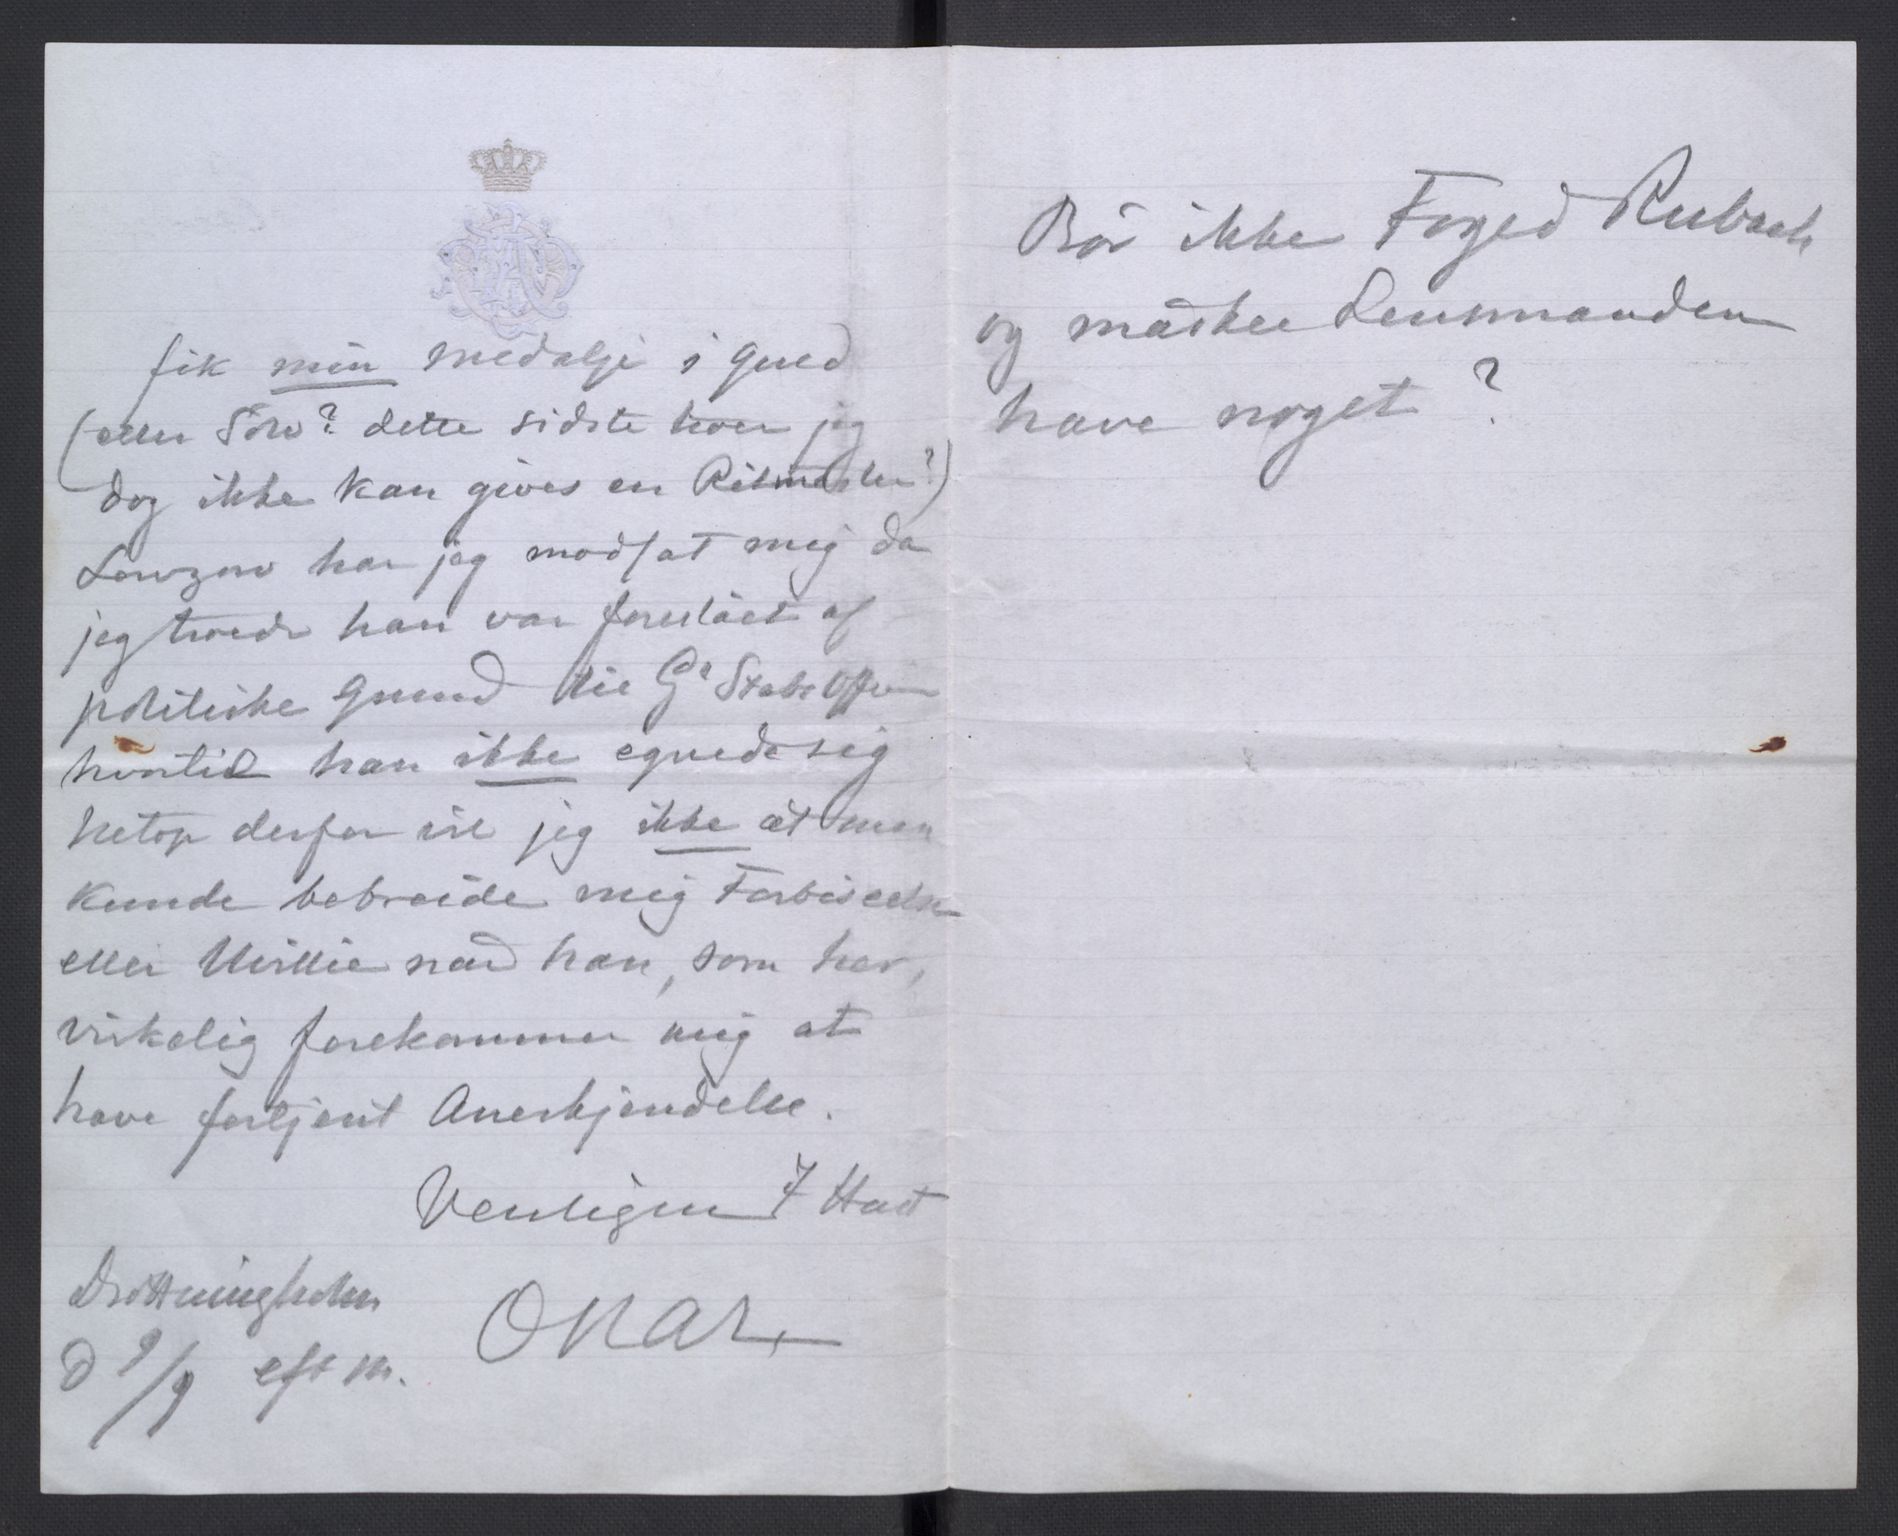 fik min Medalje i Guld
(eller Sölv? dette sidste troer jeg
dog ikke kan gives en Ritmester?)
Lowzow har jeg modsat mig da
jeg troede han var foreslået af
politiske Grund til Gl Stabsofficer
hvortil han ikke egnede sig
netop derfor vil jeg ikke at man
kunde bebreide mig Forbiseelse
eller Uvillie naar han, som her,
virkelig forekommer mig at
have fortjent Anerkjendelse.
Venligen I Hast
Drottningholm
d 9/9 eft m.
Oskar
Bör ikke Foged Rubach
og måskee Lensmanden
have noget?